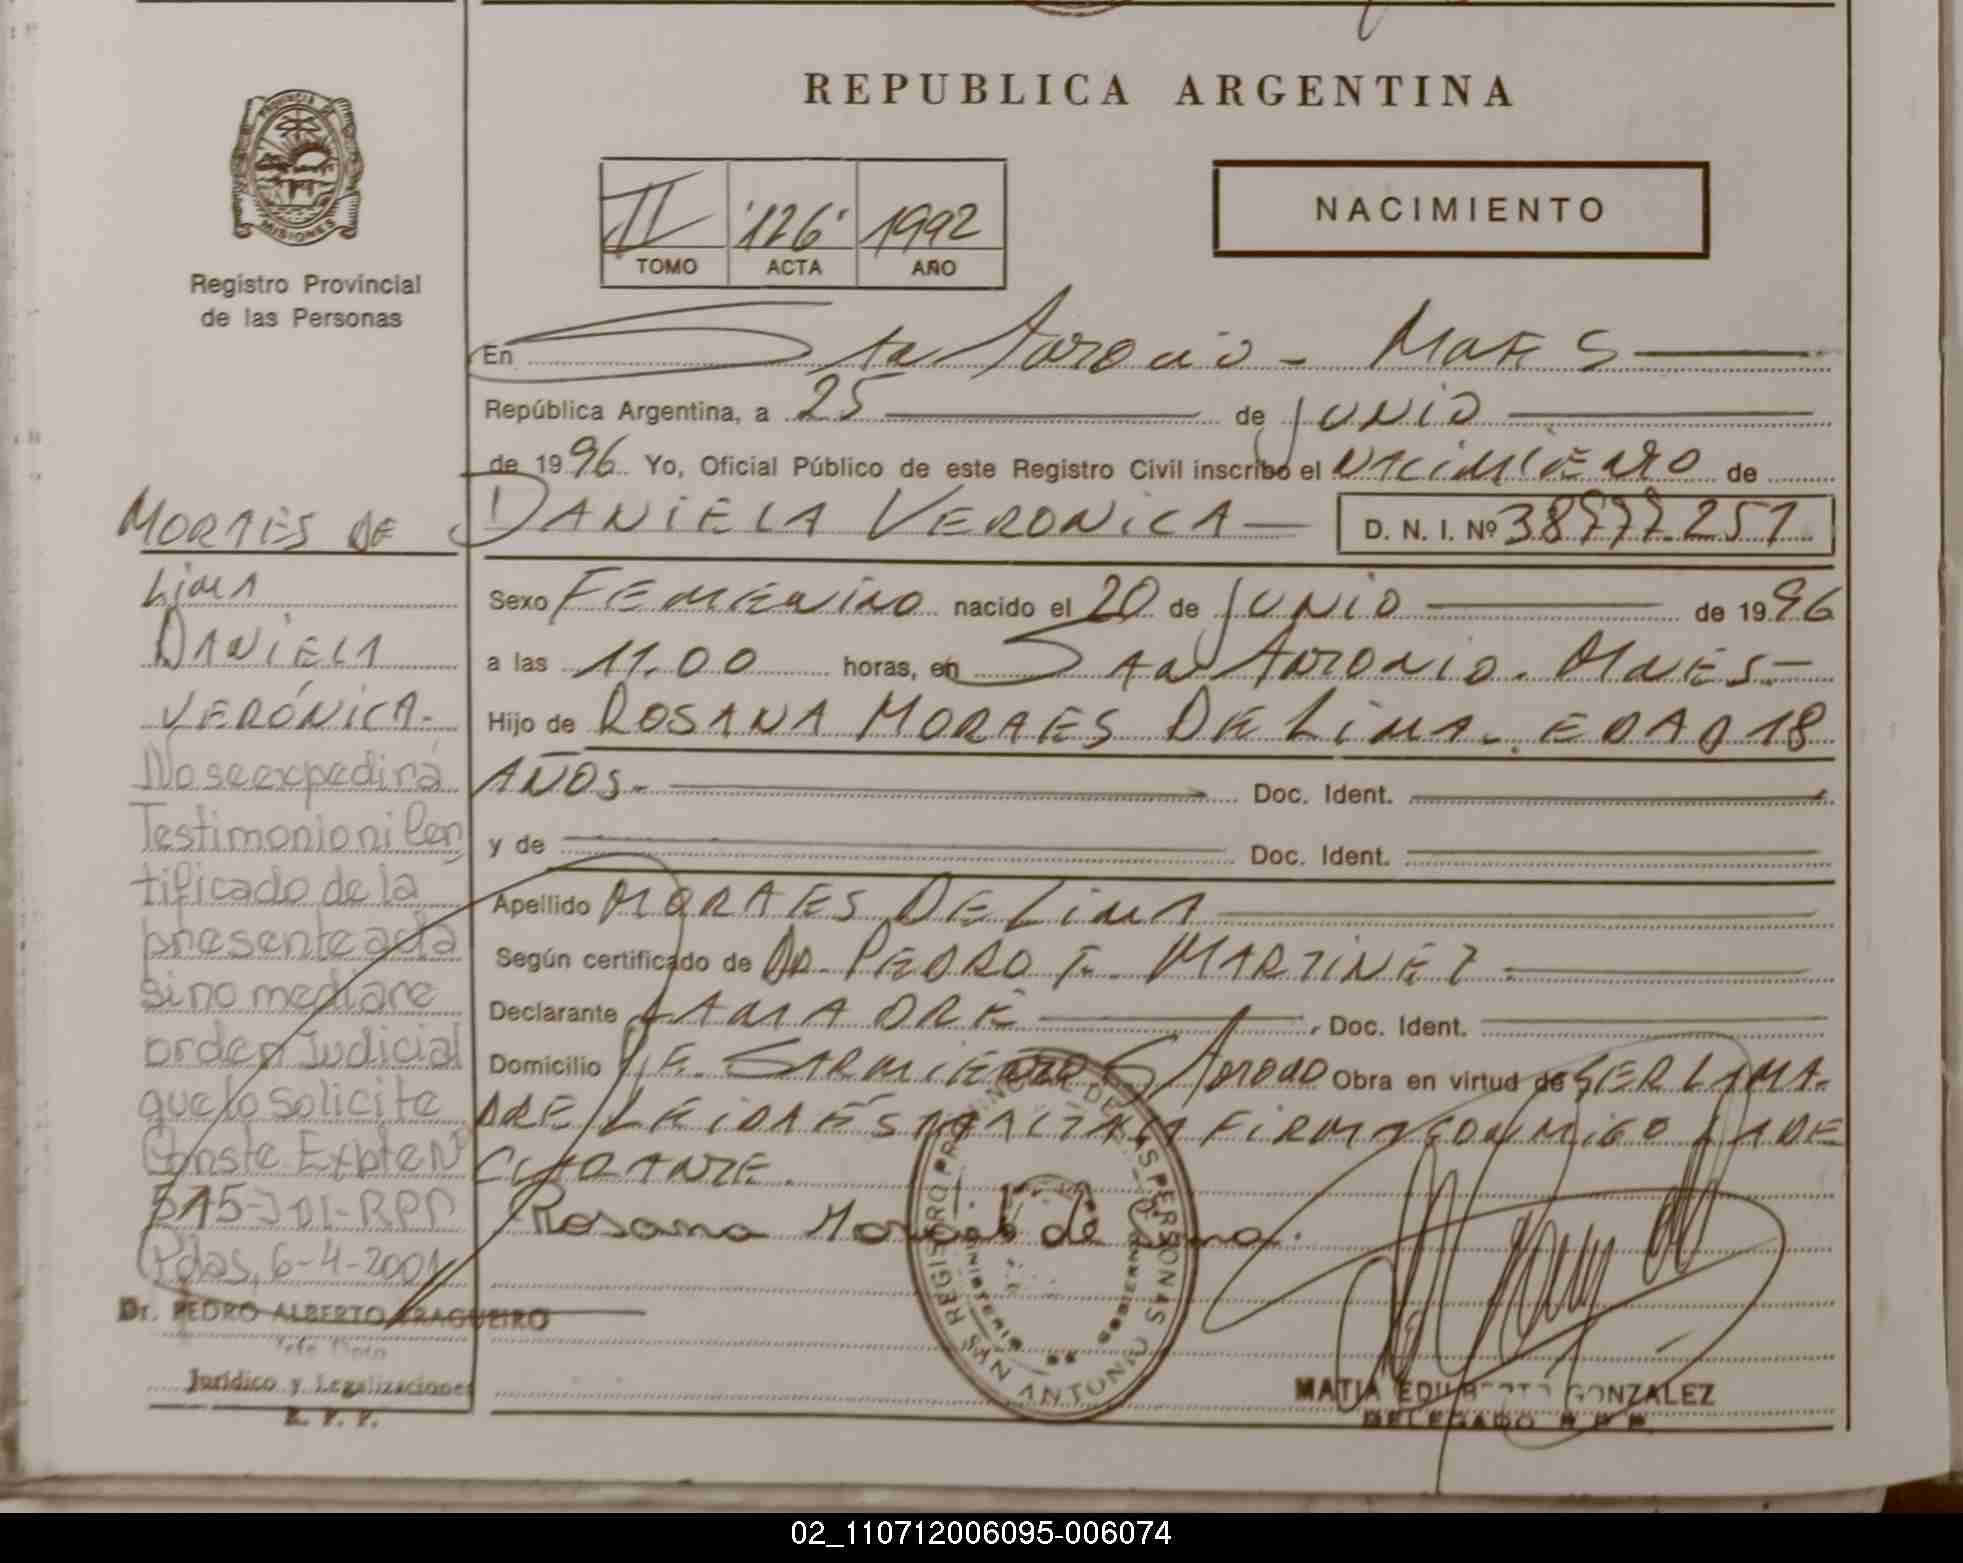 REPUBLICA ARGENTINA
PROVINCIA DE
MISIONES
Registro Provincial
de las Personas
II '126' 1992
TOMO ACTA AÑO
NACIMIENTO
En San Antonio - Mnes
República Argentina, a 25 de Junio
de 1996 Yo, Oficial Público de este Registro Civil inscribo el nacimiento de
DANIELA VERONICA D. N. I. Nº 38777.251
Sexo Femenino nacido el 20 de Junio de 1996
a las 11.00 horas, en San Antonio. Mnes.
Hijo de ROSANA MORAES DE LIMA. EDAD 18
AÑOS. Doc. Ident.
y de Doc. Ident.
Apellido MORAES DE LIMA
Según certificado de DR. PEDRO F. MARTINEZ
Declarante LA MADRE Doc. Ident.
Domicilio SARMIENTO S Antonio Obra en virtud de SER LA MA-
DRE LEIDA ESTA ACTA LA FIRMA CONMIGO LA DE
CLARANTE.
Rosana Moraes de Lima.
REGISTRO PROVINCIAL DE LAS PERSONAS
MINISTERIO GOBIERNO
SAN ANTONIO
GONZALEZ
DELEGADO R P P
MORAES DE
LIMA
DANIELA
VERÓNICA.
No se expedirá
Testimonio ni Cer
tificado de la
presente acta
sino mediare
orden Judicial
que lo solicite
Conste Expte Nº
515-J01-RPP
Pdas, 6-4-2001
Dr. PEDRO ALBERTO FRAGUEIRO
Jefe Dpto
Jurídico y Legalizaciones
R. P. P.
02_110712006095-006074